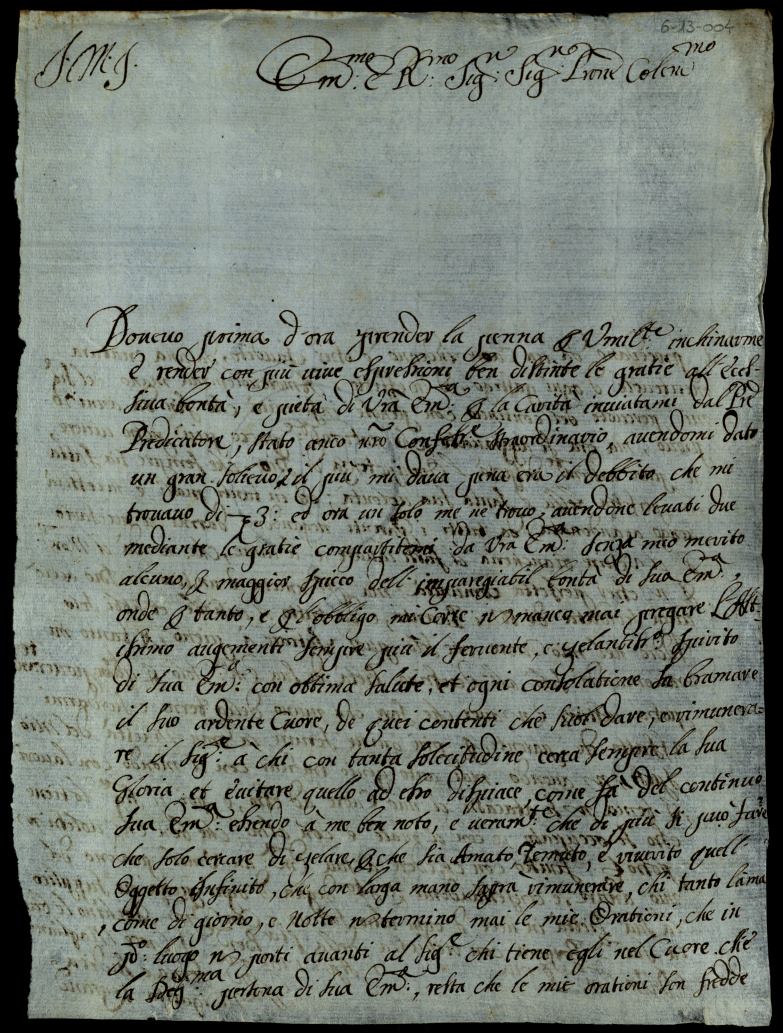 6-13-004
J: M: J.
Em.me e R.mo Sig.r Sig.r Prone Colen.mo
Dovevo prima d'ora prender la penna p Vmil.te inchinarme
e render con più vive espressioni ben distinte le gratie all'Ecces-
siva bontà, e pietà di Vrã Em.a p la Carità inviatami dal Prẽ
Predicatore, stato anco nrõ Confess.re straordinario, avendomi dato
un gran solievo, il più mi dava pena era il debbito che mi
trovavo di 3: ed ora un solo me ne trovo, avendone levati due
mediante le gratie compartitemi da Vrã Em.a: senza mio merito
alcuno, p maggior spicco dell'impareggiabil bontà di sua Em.a,
onde p tanto, e p l'obbligo mi Corre ñ manco mai pregare L'Alt-
issimo augementi sempre più il fervente, e zelantiss.o spirito
di sua Em.a: con ottima salute, et ogni consolatione sà bramare
il suo ardente Cuore, de quei contenti che suol dare, e rimunera-
re il Sig.re à chi con tanta solecitudine cerca sempre la sua
Gloria et evitare quello ad esso dispiace, come fà del continuo
sua Em.a: essendo à me ben noto, e veram.te che di più si può fare
che solo cercare di zelare, p che sia Amato, Temuto, e riverito quell
Oggetto Infinito, che con larga mano saprà rimunerare, chi tanto l'ama
, come di giorno, e Notte ñ termino mai le mie Orationi, che in
p.o: luogo ñ porti avanti al Sig.re chi tiene egli nel Cuore che
la Deg.ma: persona di sua Em.a:, resta che le mie orationi son fredde